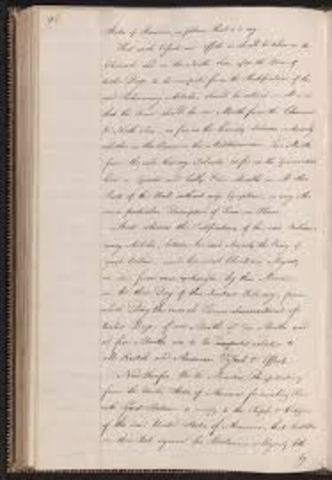 States of America, as follows that is to say
That such Vessels and Effects as should be taken in the
Channel and in the North Seas after the Space of
twelve Days to be computed from the Ratification of the
said Preliminary Articles should be restored
that the Term should be one Month from the Channel
& North Seas as far as the Canary Islands inclusively
whether in the Ocean or the Mediterranean Two Months
from the said Canary Islands as far as the Equinoctial
Line or Equator and lastly Five Months in all other
Parts of the World without any Exception or any other
more particular Description of Time or Place
And whereas the Ratifications of the said Prelimi-
nary Articles between his said Majesty the King of
Great Britain and his most Christian Majesty
in due form were exchanged by their Ministers
on the third Day of this Instant February, from
which Day the several Terms
twelve Days, of one Month of two Months and
of five Months are to be computed relative to
all British and American Vessels & Effects
Now therefore We the Ministers Plenipotentiary
from the United States of America for making Peace
with Great Britain notify to the People & Citizens
of the said United States of America that Hostilities
on their Part against his Britannic Majesty both
by